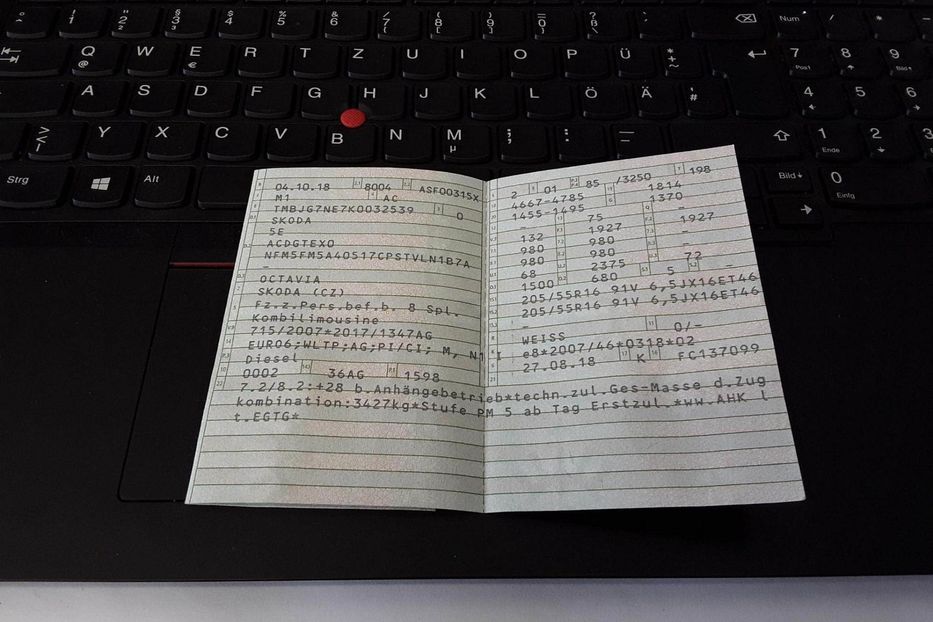 Q W E R T Z U I O P Ü
@ €
A S D F G H J K L Ö Ä #
Y X C V B N M ; : _
µ
Strg Alt
Num
7 8 9
Pos1 Bild
4 5 6
1 2 3
Ende
Bild 0
Einfg
04.10.18 8004 ASF00315X
M1 AC
TMBJG7NE7K0032539 0
SKODA
5E
ACDGTEX0
NFM5FM5A40517CPSTVLN1B7A
–
OCTAVIA
SKODA (CZ)
Fz.z.Pers.bef.b. 8 Spl.
Kombilimousine
715/2007*2017/1347AG
EURO6;WLTP;AG;PI/CI; M, N1 I
Diesel
0002 36AG 1598
2 01 85 /3250 198
4667-4785 1814
1455-1495 1370
– 75
132 1927 1927
980 980 –
980 980 –
68 2375 72
1500 680 5 –
205/55R16 91V 6,5JX16ET46
205/55R16 91V 6,5JX16ET46
–
WEISS 0/–
e8*2007/46*0318*02
27.08.18 K FC137099
7.2/8.2:+28 b.Anhängebetrieb*techn.zul.Ges-Masse d.Zug
kombination:3427kg*Stufe PM 5 ab Tag Erstzul.*ww.AHK l
t.EGTG*